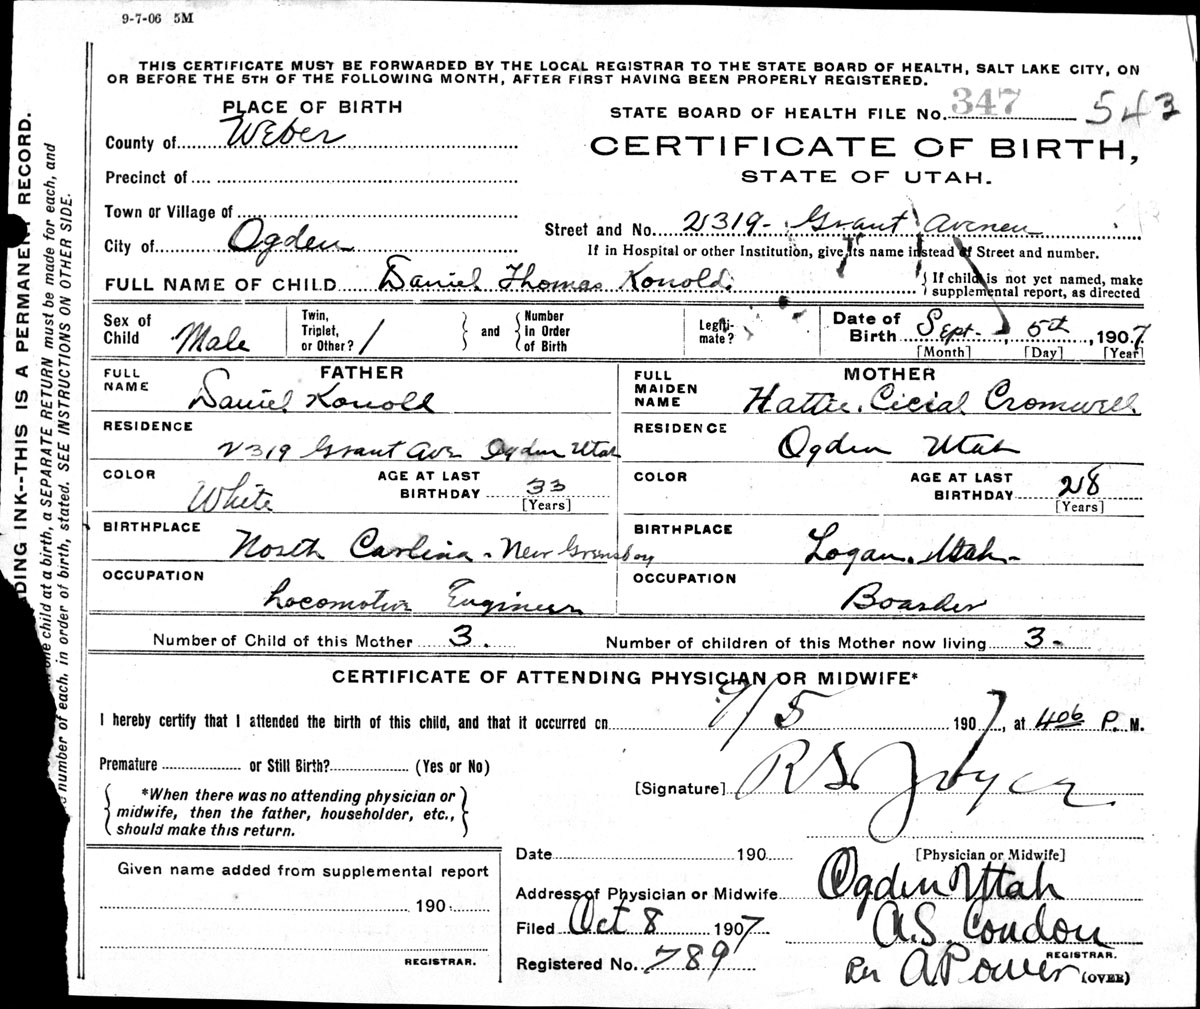 9-7-06 5M
THIS CERTIFICATE MUST BE FORWARDED BY THE LOCAL REGISTRAR TO THE STATE BOARD OF HEALTH, SALT LAKE CITY, ON
OR BEFORE THE 5TH OF THE FOLLOWING MONTH, AFTER FIRST HAVING BEEN PROPERLY REGISTERED.
PLACE OF BIRTH
STATE BOARD OF HEALTH FILE No. 347 543
County of Weber
CERTIFICATE OF BIRTH,
STATE OF UTAH.
Precinct of
Town or Village of
Street and No. 2319 - Grant Avenue
City of Ogden
If in Hospital or other Institution, give its name instead of Street and number.
FULL NAME OF CHILD Daniel Thomas Konold.
{ If child is not yet named, make
supplemental report, as directed
Sex of Child Male
Twin, Triplet, or Other? /
and
Number in Order of Birth
Legiti-mate?
Date of Birth Sept. 5th, 1907
[Month] [Day] [Year]
FATHER
FULL NAME Daniel Konold
MOTHER
FULL MAIDEN NAME Hattie Cicial Cromwell
RESIDENCE 2319 Grant Ave Ogden Utah
RESIDENCE Ogden Utah
COLOR White
AGE AT LAST BIRTHDAY 33 [Years]
COLOR
AGE AT LAST BIRTHDAY 28 [Years]
BIRTHPLACE North Carolina - New
BIRTHPLACE Logan, Utah -
OCCUPATION Locomotive Engineer
OCCUPATION Boarder
Number of Child of this Mother 3.
Number of children of this Mother now living 3 -
CERTIFICATE OF ATTENDING PHYSICIAN OR MIDWIFE*
I hereby certify that I attended the birth of this child, and that it occurred on 9/5 1907, at 4 06 P. M.
Premature or Still Birth? (Yes or No)
[Signature] R S Joyce
*When there was no attending physician or
midwife, then the father, householder, etc.,
should make this return.
Date 190
[Physician or Midwife]
Given name added from supplemental report
190
REGISTRAR.
Address of Physician or Midwife Ogden Utah
Filed Oct 8 1907
A.S. Condon
REGISTRAR.
Registered No. 789
Per A Power (OVER)
DING INK--THIS IS A PERMANENT RECORD.
one child at a birth, a SEPARATE RETURN must be made for each, and
number of each. in order of birth, stated. SEE INSTRUCTIONS ON OTHER SIDE.